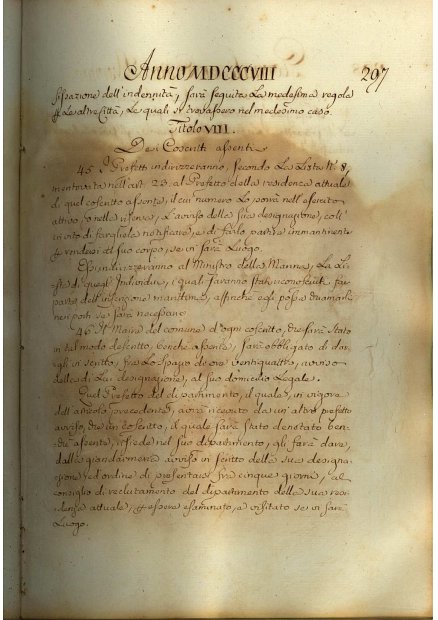 Anno MDCCCVIII
297
fissazione dell'indennità, sarà seguita la medesima regola
le altre Città, le quali si trovassero nel medesimo caso.
Titolo VIII.
Dei Coscritti assenti
45. I Prefetti indirizzeranno, secondo la Lista N.° 8,
mentovata nell'art. 23. al Prefetto della residenza attuale
di quel coscritto assente, il cui numero lo porrà nell'esercito
attivo, o nella riserva, l'avviso della sua designazione, coll'
di farglielo notificare, e di farlo partire immantinente
rendersi al suo corpo, se vi sarà Luogo.
Essi indirizzeranno al Ministro della Marina, la Li-
sta di quegl'Individui, i quali saranno stati riconosciuti far
parte dell'inscrizione marittima, affinchè egli possa chiamarli
nei porti se sarà necessario.
46. Il Maire del comune d'ogni coscritto, che sarà stato
in tal modo descritto, benchè assente, sarà obbligato di dar-
gli in scritto, fra lo spazio de ore ventiquattro, avviso
della di lui designazione, al suo domicilio Legale.
Quel Prefetto del dipartimento, il quale, in vigore
dell'articolo precedente, avrà ricevuto da un'altro prefetto
avviso, che un coscritto, il quale sarà stato denotato ben-
chè assente, risiede nel suo dipartimento, gli farà dare,
dalla giandarmeria avviso in scritto della sua designa-
zione ed ordine di presentarsi fra cinque giorni, al
consiglio di reclutamento del dipartimento della sua resi-
denza attuale, essere esaminato, e visitato se vi sarà
Luogo.